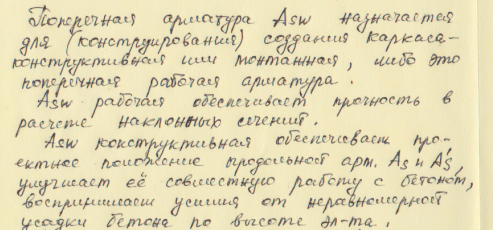 Поперечная арматура Asw назначается
для (конструирования) создания каркаса-
конструктивная или монтажная, либо это
поперечная рабочая арматура.
Asw рабочая обеспечивает прочность в
расчете наклонных сечений.
Asw конструктивная обеспечивает про-
ектное положение продольной арм. As и A's,
улучшает её совместную работу с бетоном,
воспринимает усилия от неравномерной
усадки бетона по высоте эл-та.